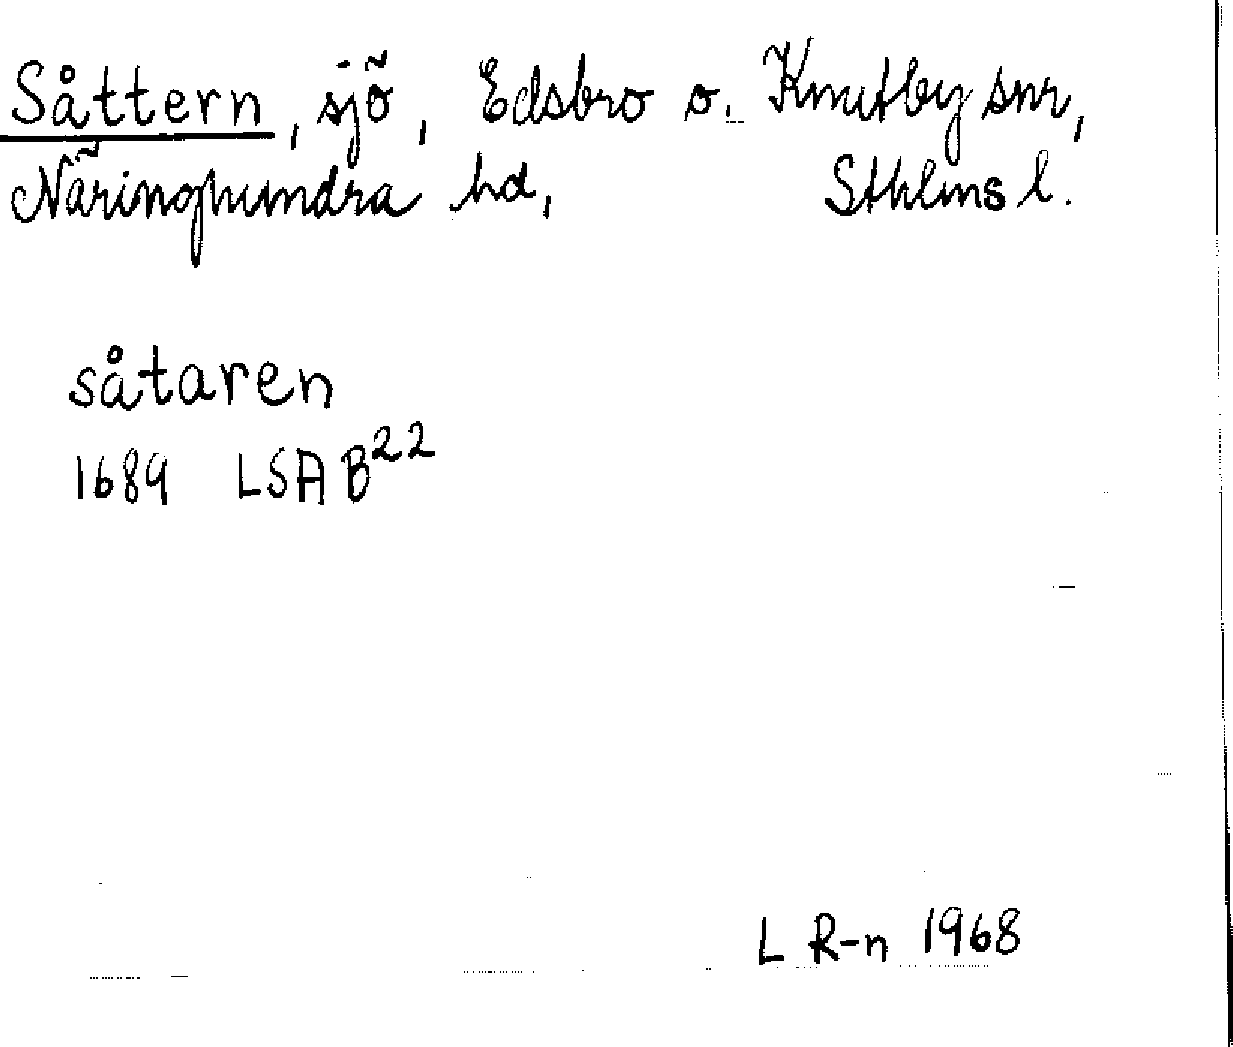 Såttern, sjö, Edsbro o. Knutby snr,
Näringhundra hd, Sthlms l.
såtaren
1689 LSA B²²
L R-n 1968